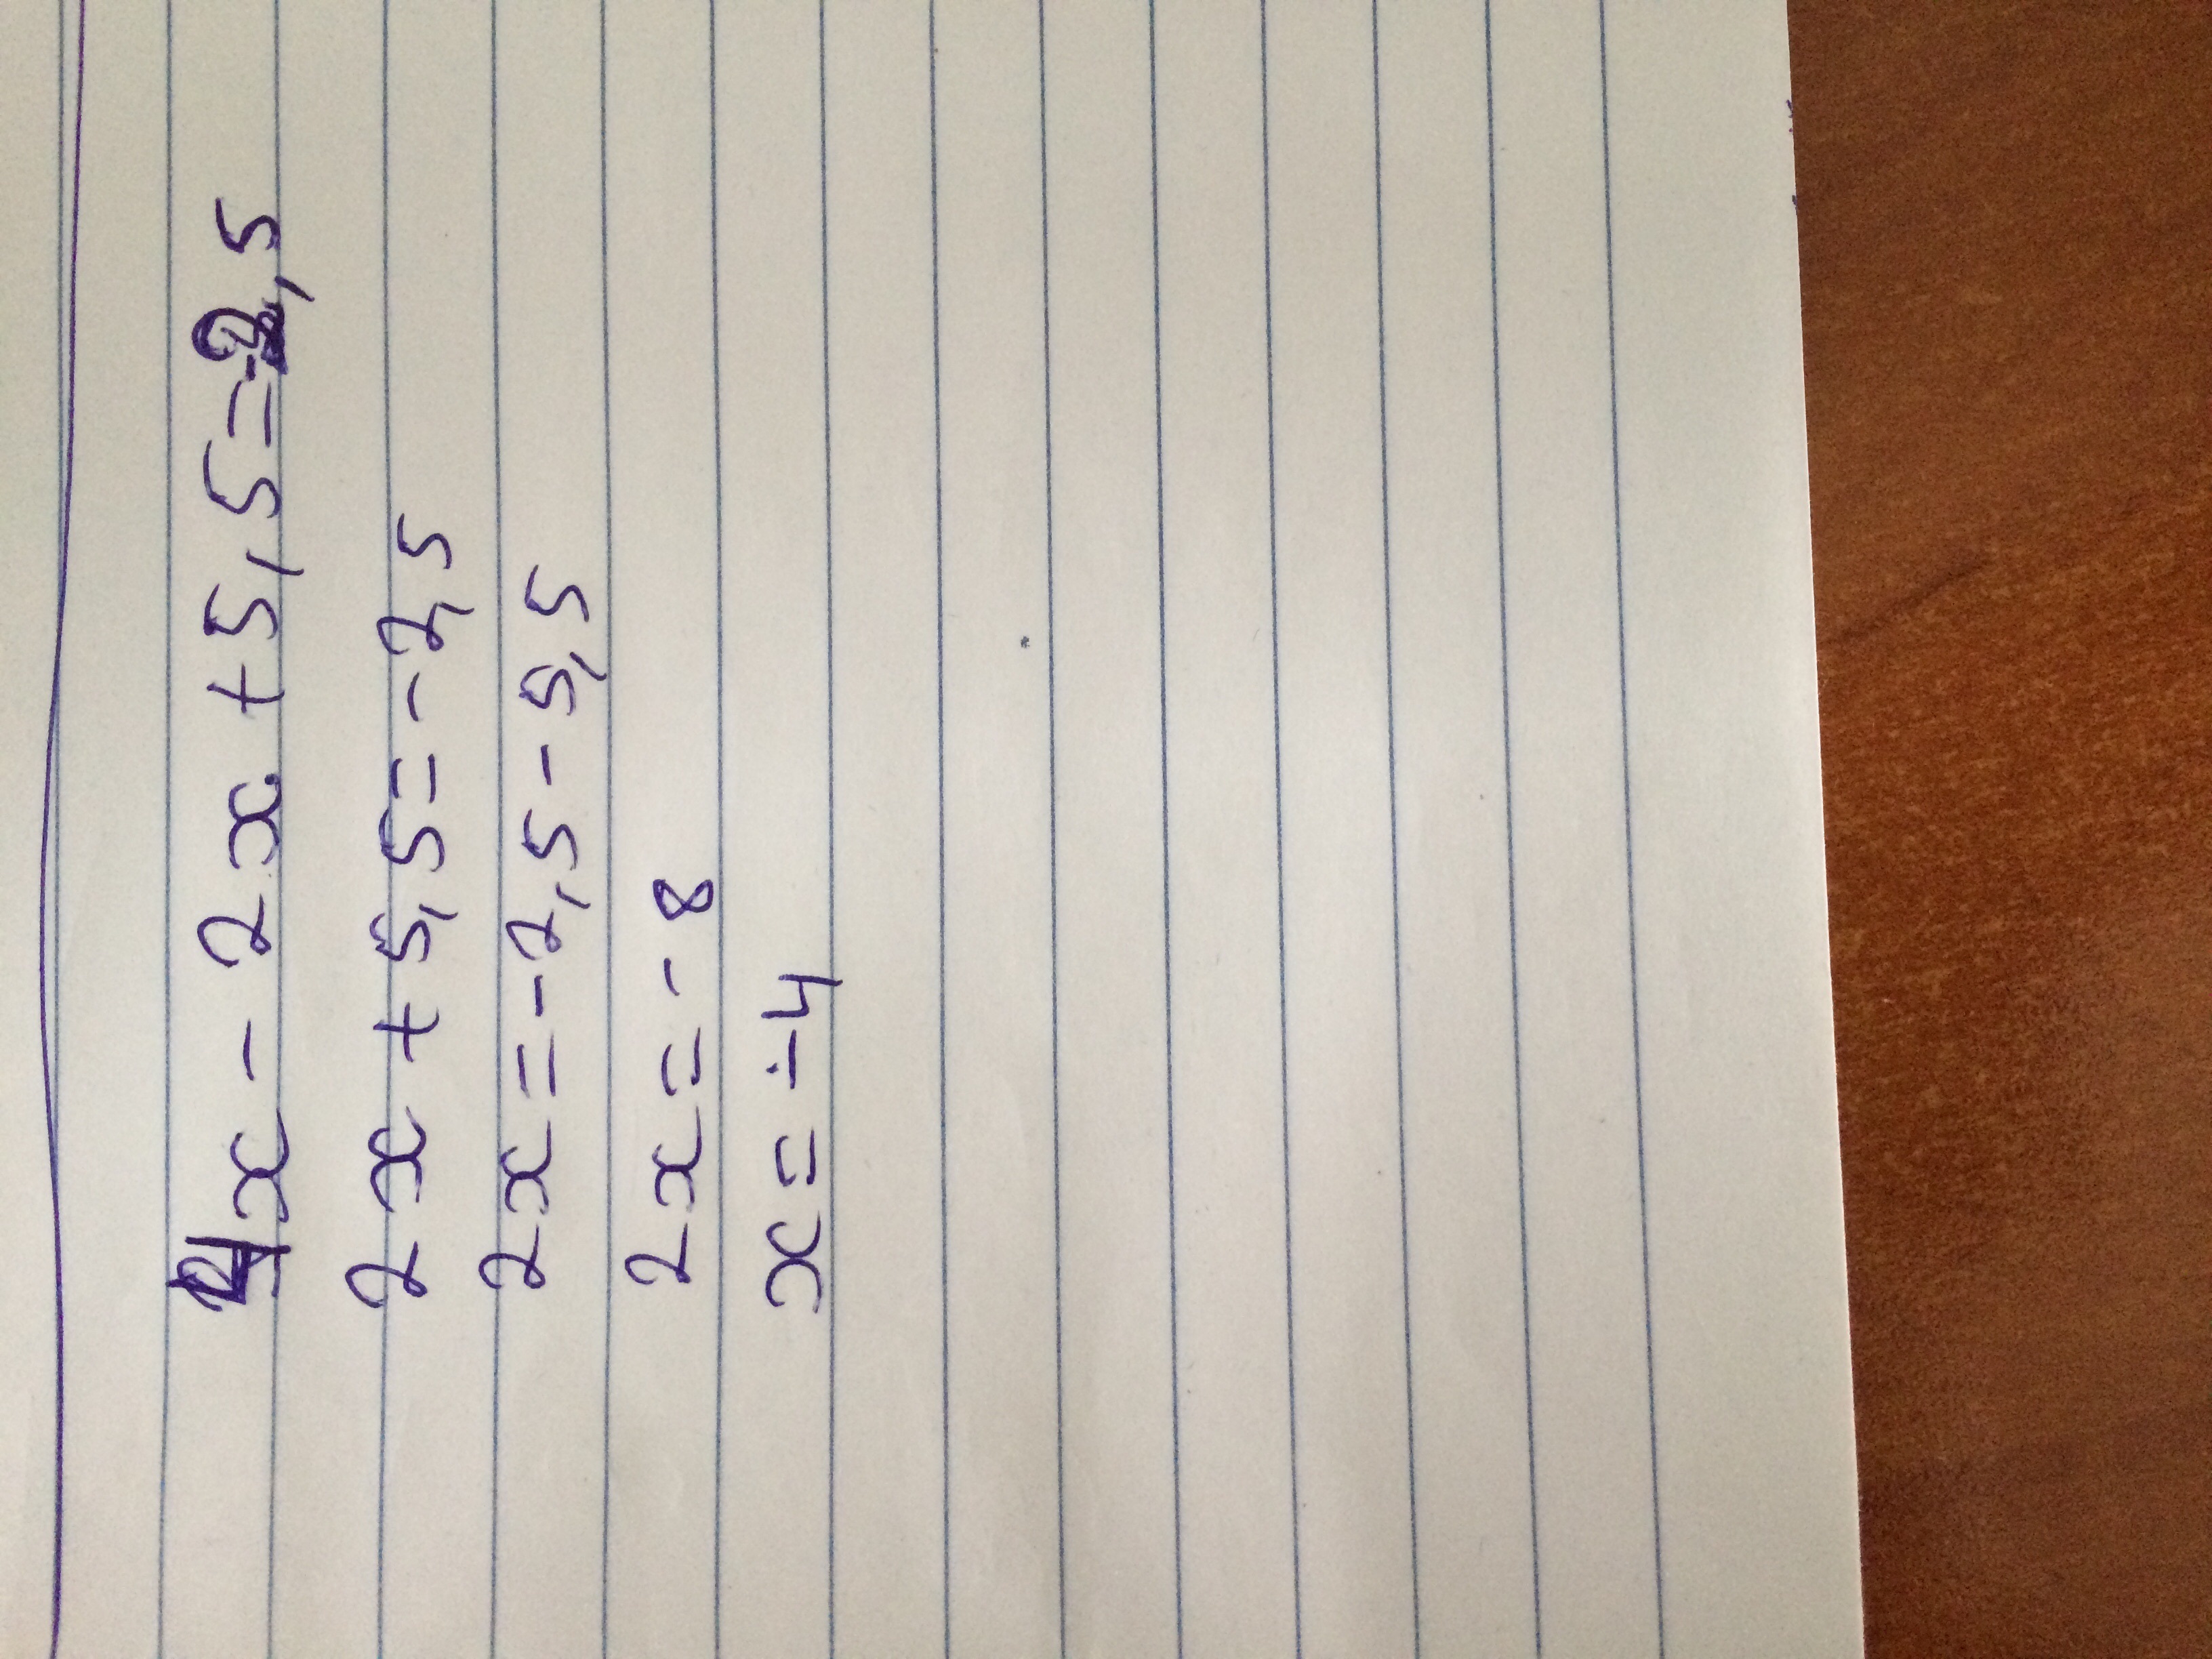 4x - 2x + 5,5 = -2,5
2x + 5,5 = -2,5
2x = -2,5 - 5,5
2x = -8
x = -4